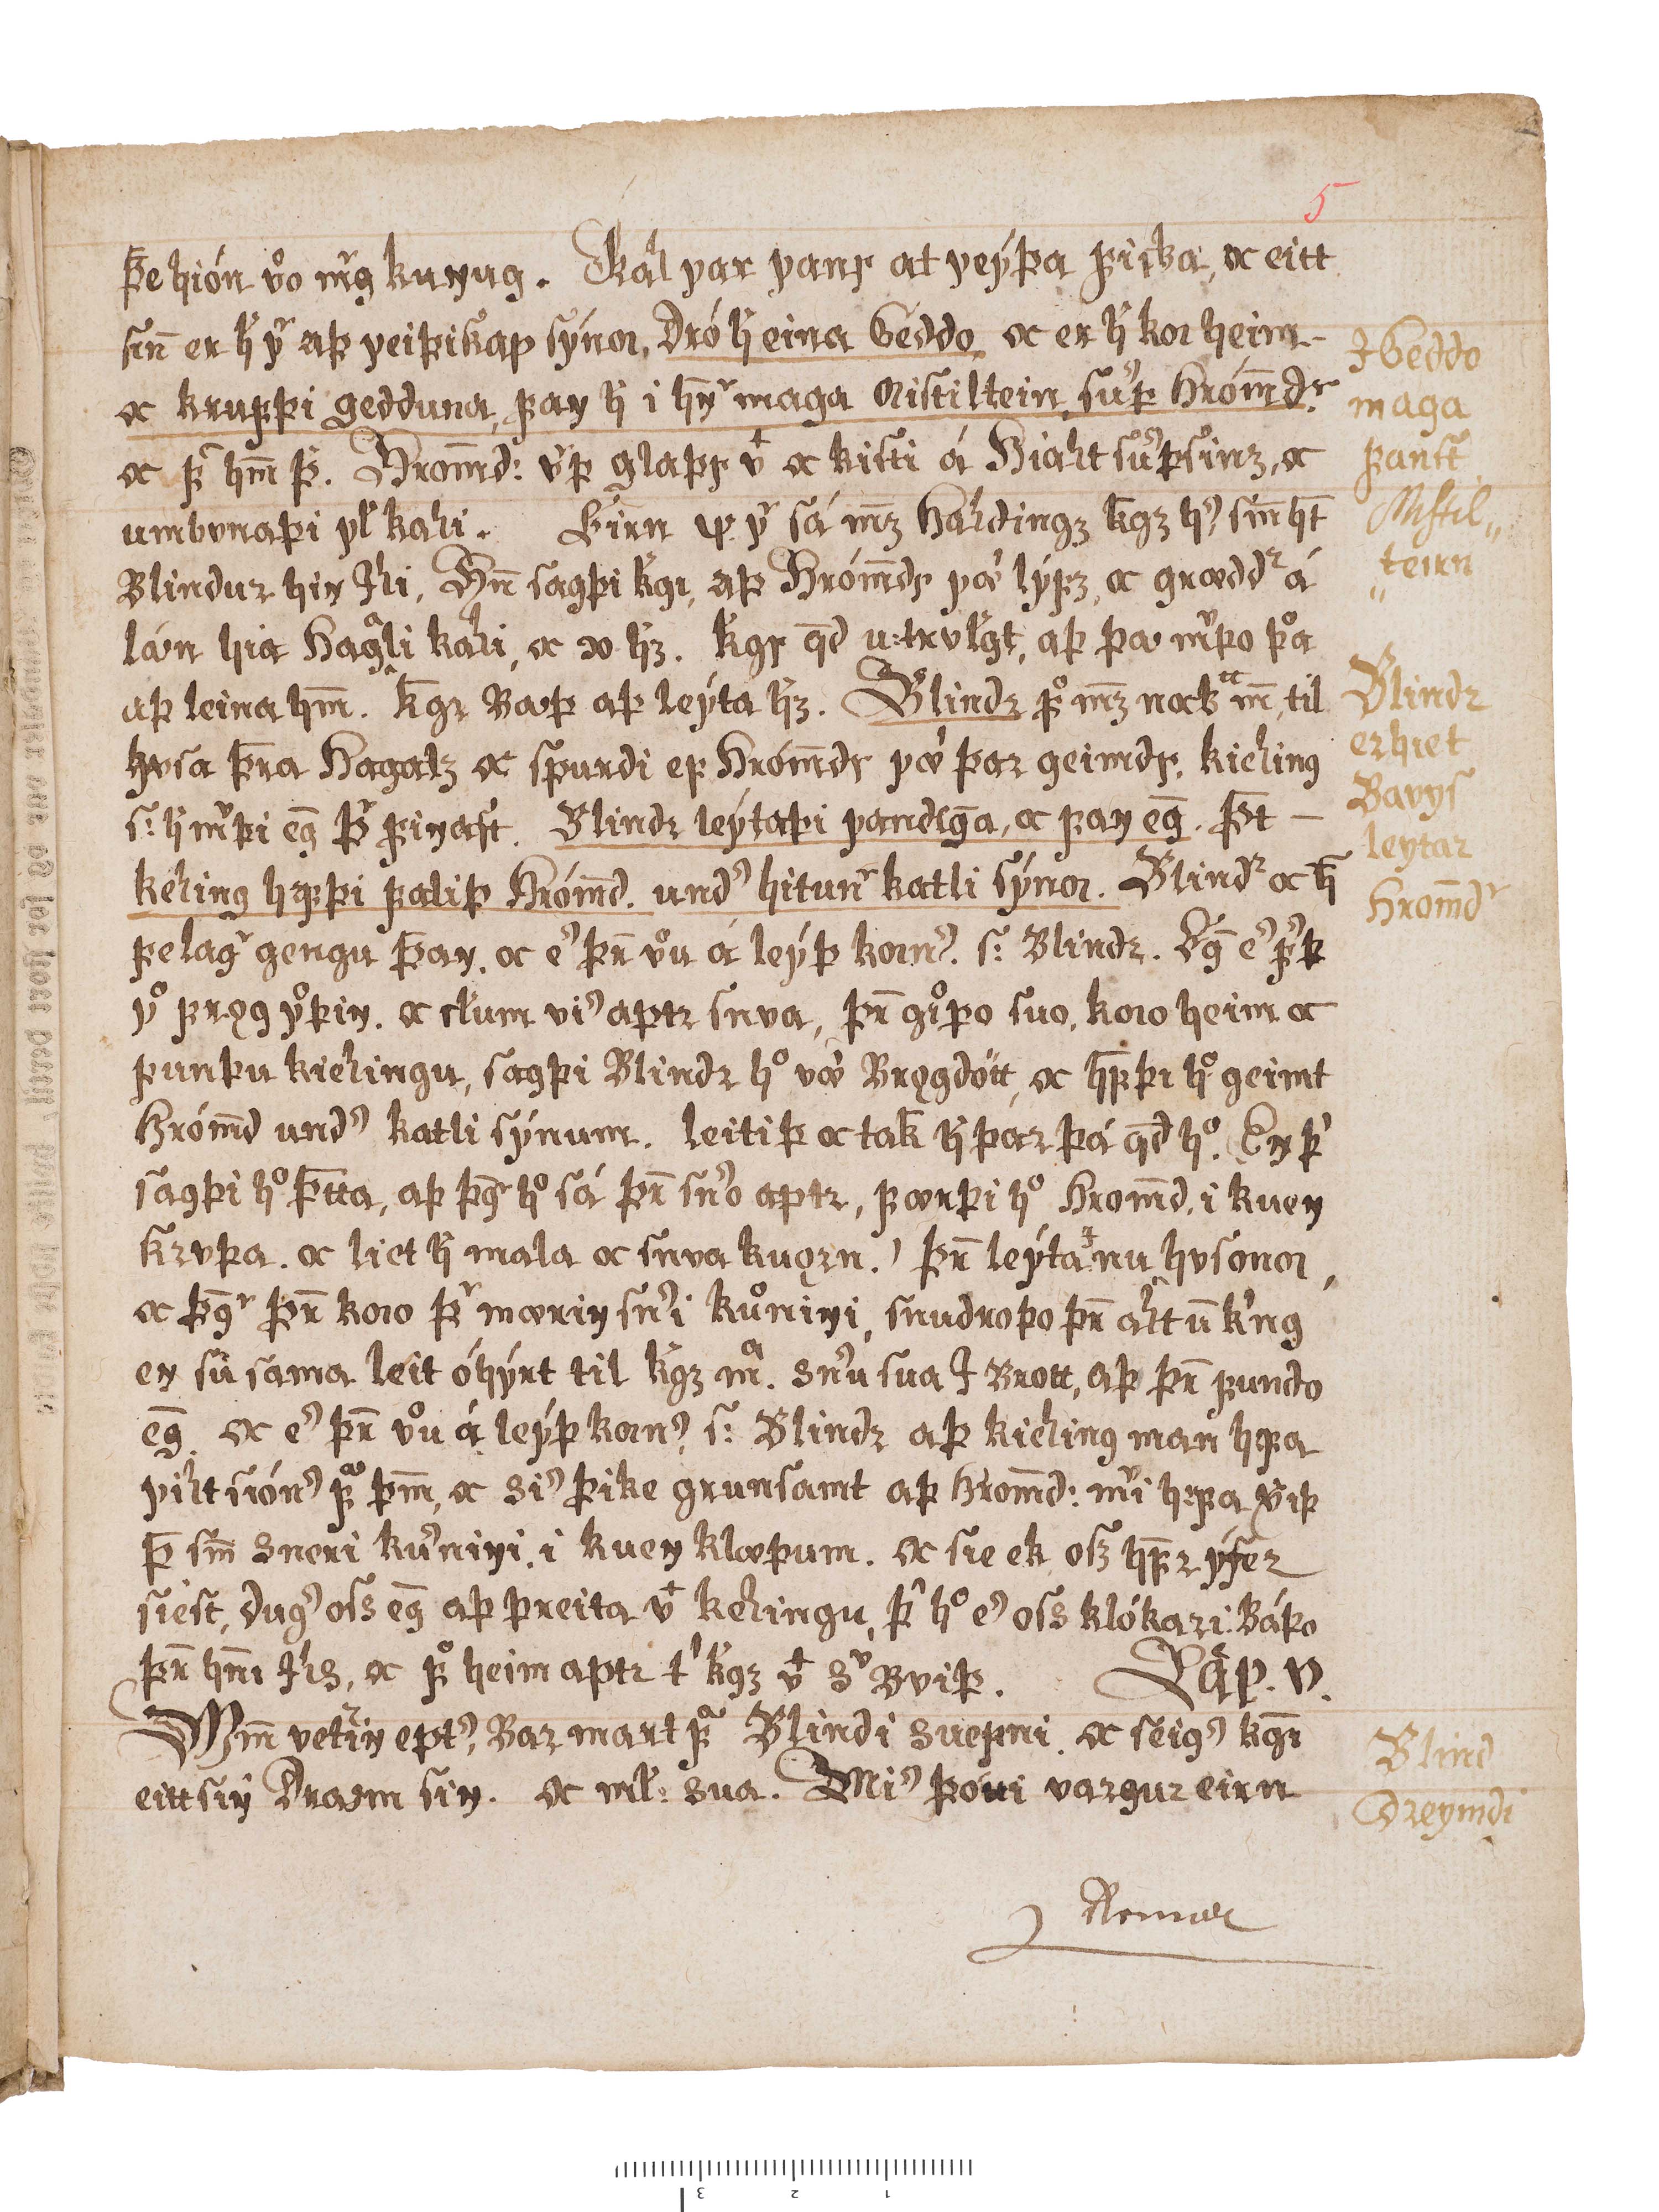 5
Þe hión vͦo mͬg kunnug. Kall var vanr at veýþa fiska, oc eitt
sin̄ er h̄ vͬ aþ veiþiskap sýnom, dró h̄ eina Geddo oc er h̄ kom heim
oc kruffi gedduna, fan h̄ i hn̄ͬ maga Mistiltein, suerþ Hróm̄dͬ
oc fͬ hm̄ þ. Hrom̄d: vͬþ glaþr v oc kisti á Hialt suerþsinz, oc
umbunaþi vl kalli. Eirn vͬ sá mz Haldingz kgz hˀ sm̄ ht̄
Blindur hin Illi, Hn̄ sagþi kgi, aþ Hróm̄dr væ lýfz, oc græddͬ á
láun hia Hagali kalli, oc h̄z. kgr qd u:trulegt, aþ þæ mͬþo þͦa
aþ leina hm̄. kgr Baþ aþ leýta h̄z. Blindr fͦ mz nock m̄, til
husa þra Hagalz oc spurdi ef Hróm̄dr væ þar geimdr, kielling
s: h̄ mͬþi eg þͬ finnast. Blindr leýtaþi vandlega, oc fan eg. þt
kelling hafþi faliþ Hróm̄d. undˀ hitunͬ katli sýnom. Blindͬ oc h̄
felagͬ gengu þan. oc eˀ þr̄ vͦu á leýþ komnˀ. s: Blindr. Eḡ eˀ fͬþ
vͦ fręg vͦþin. oc skulum viˀ aptr snva, þr̄ giͦþo suo, komo heim oc
funþu kiellingu, sagþi Blindr hͦ væ Brǫgdott, oc hafþi hͦ geimt
Hróm̄d undˀ katli sýnum. leitiþ oc tak h̄ þar þá qd hͦ. En þͥ
sagþi hͦ þtta, aþ þgͬ hͦ sá þr̄ snˀo aptr, færþi hͦ Hrom̄d. i kuen
kruþa. oc liet h̄ mala oc snva kuǫrn. þr̄ leýta nu husonom,
oc þgͬ þr̄ komo þͬ mærin snˀi kuͦnini, snudroþo þr̄ allt u kͥng
en su sama leit óhýrt til kgz m. snˀu sua J Brott, aþ þr̄ fundo
eg. oc eˀ þr̄ vͦu á leýþ komnˀ, s: Blindr aþ kielling man hafa
villt siónˀ fͬ þm̄, oc siˀ þike grunsamt aþ Hrom̄d: mͬi hafa vͬiþ
þ sm̄ sneri kuˀnini, i kuen klæþum. oc sie ek, osz hefr ýfer
siest, dugˀ oss eg aþ þreita v kellingu, þͥ hͦ eˀ oss klókari. Báþo
þr̄ hn̄i Jlls, oc fͦ heim aptr tͥ kgz v sͮ Buiþ. Cap. V.
Um̄ veturin eptˀ, Bar mart fͬ Blindi suefni. oc seigˀ kgi
eitt sin Draum sin. oc ml: sua. Miˀ þótti vargur eirn
Renna
J Geddo
maga
fanst
Mistil„
„teirn
Blindr
er hiet
Bavys
leytar
Hrom̄dͬ
Blind
Dreymdi
3 2 1